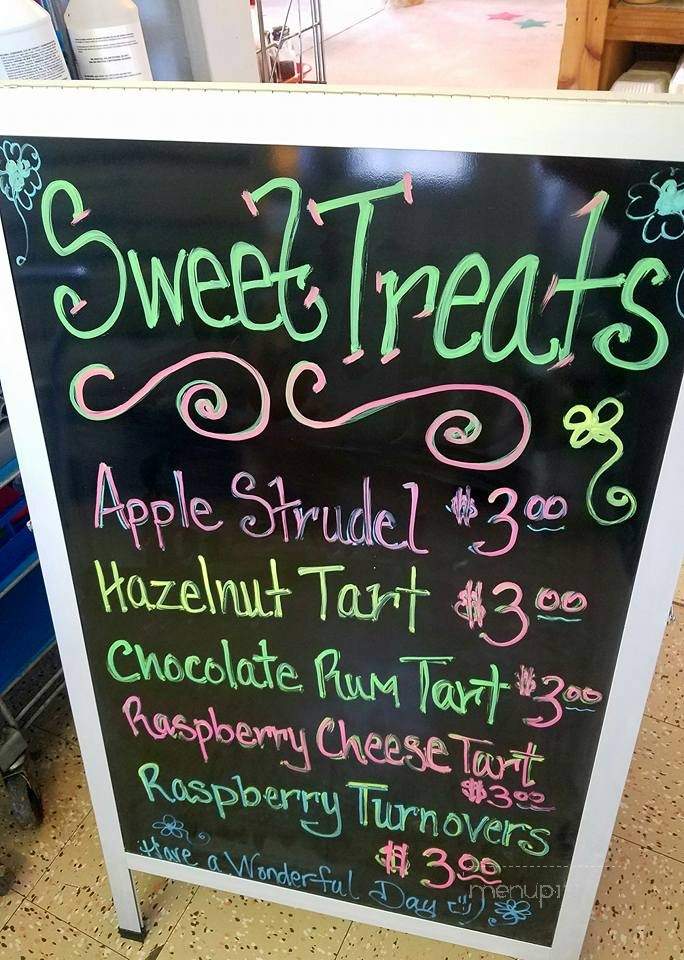 Sweet Treats
Apple Strudel $3.00
Hazelnut Tart $3.00
Chocolate Rum Tart $3.00
Raspberry Cheese Tart
$3.00
Raspberry Turnovers
$3.00
Have a Wonderful Day
menupix